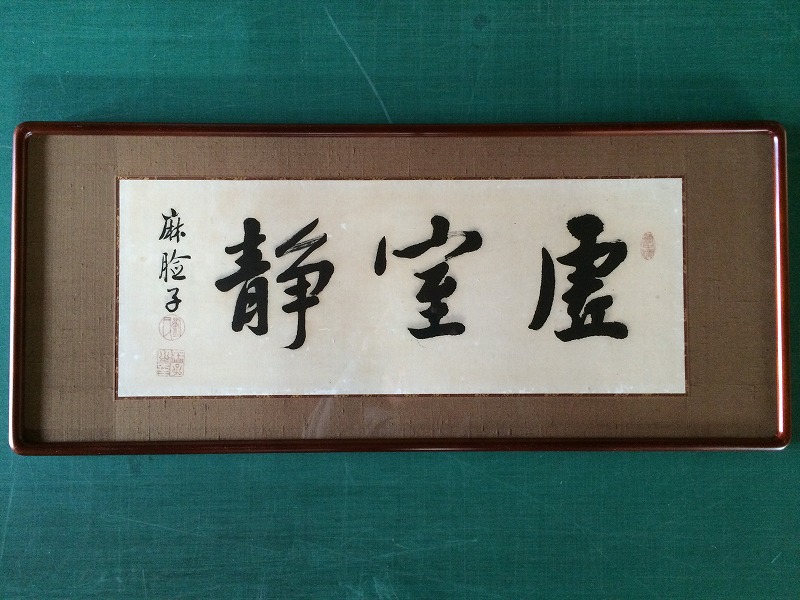 虚室静
麻脸子